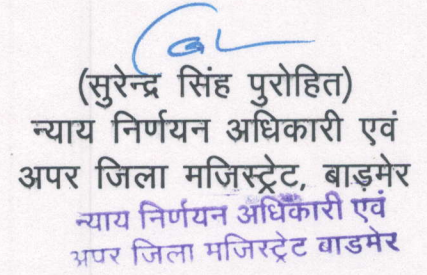 (सुरेन्द्र सिंह पुरोहित)
न्याय निर्णयन अधिकारी एवं
अपर जिला मजिस्ट्रेट, बाड़मेर
न्याय निर्णयन अधिकारी एवं
अपर जिला मजिस्ट्रेट बाडमेर